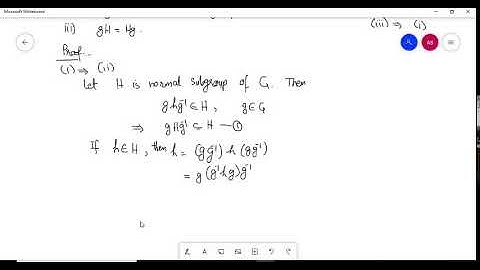 Microsoft Whiteboard
ii) gH = Hg.
(iii) ⇒ (i)
AB
Proof
(i) ⇒ (ii)
Let H is normal subgroup of G. Then
g h g⁻¹ ∈ H, g ∈ G
⇒ g H g⁻¹ ⊆ H — ①
If h ∈ H, then h = (g g⁻¹) h (g g⁻¹)
= g (g⁻¹ h g) g⁻¹